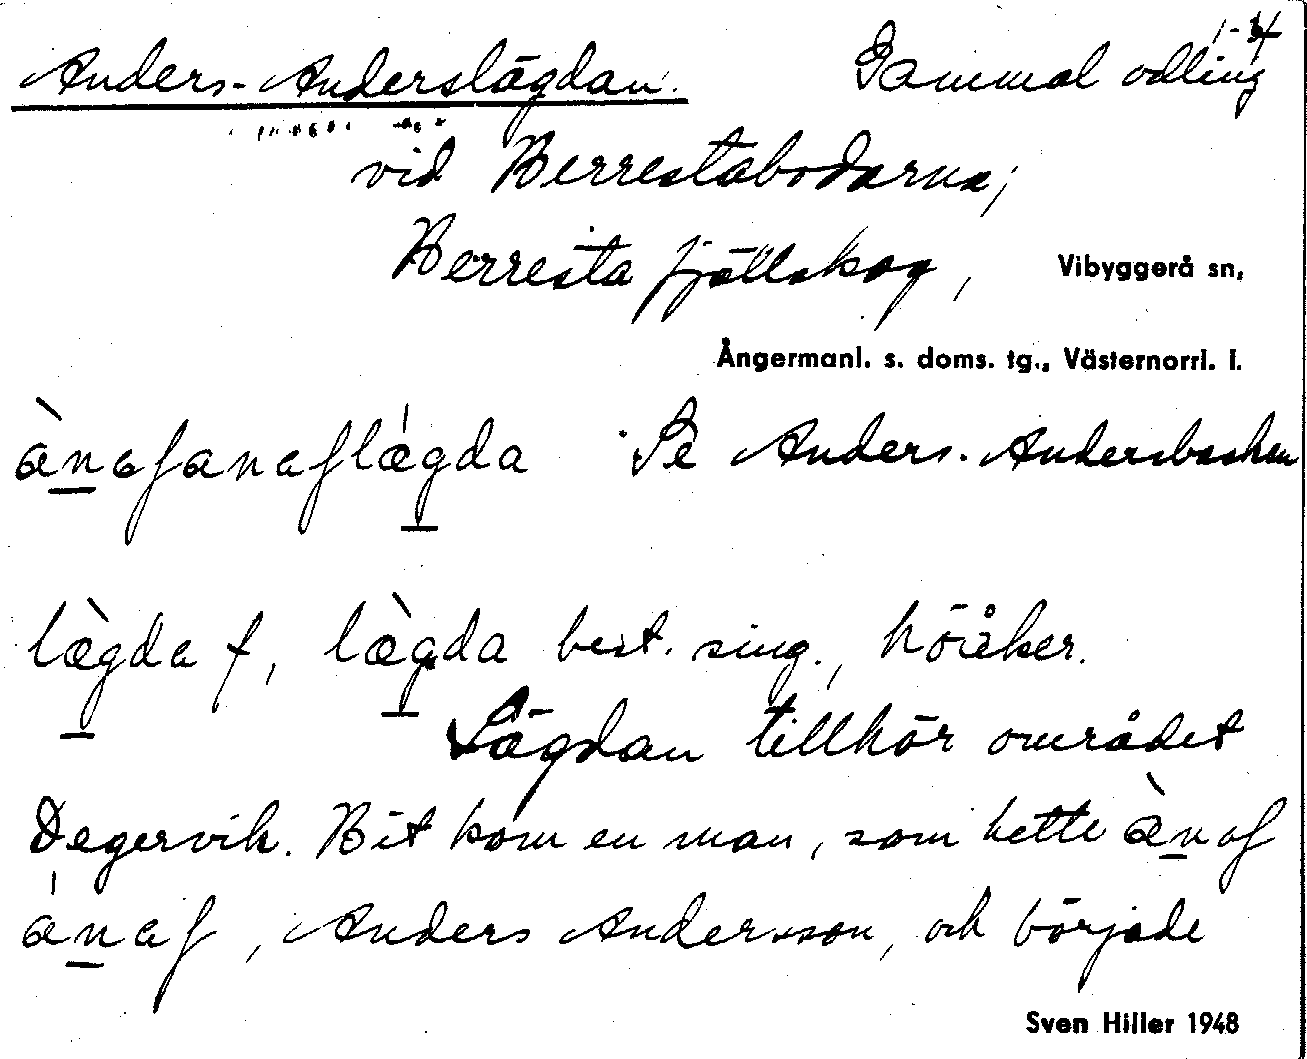 1-4
Anders-Anderslägdan. Gammal odling
vid Berrestabodarna,
Berresta fjällskog, Vibyggerå sn,
Ångermanl. s. doms. tg., Västernorrl. l.
ànaʃanaʃlægda Se Anders-Andersbacken
lægda f, lægda best. sing., höåker.
Lägdan tillhör området
Degervik. Hit kom en man, som hette ànaʃ
ánaʃ, Anders Andersson, och började
Sven Hiller 1948